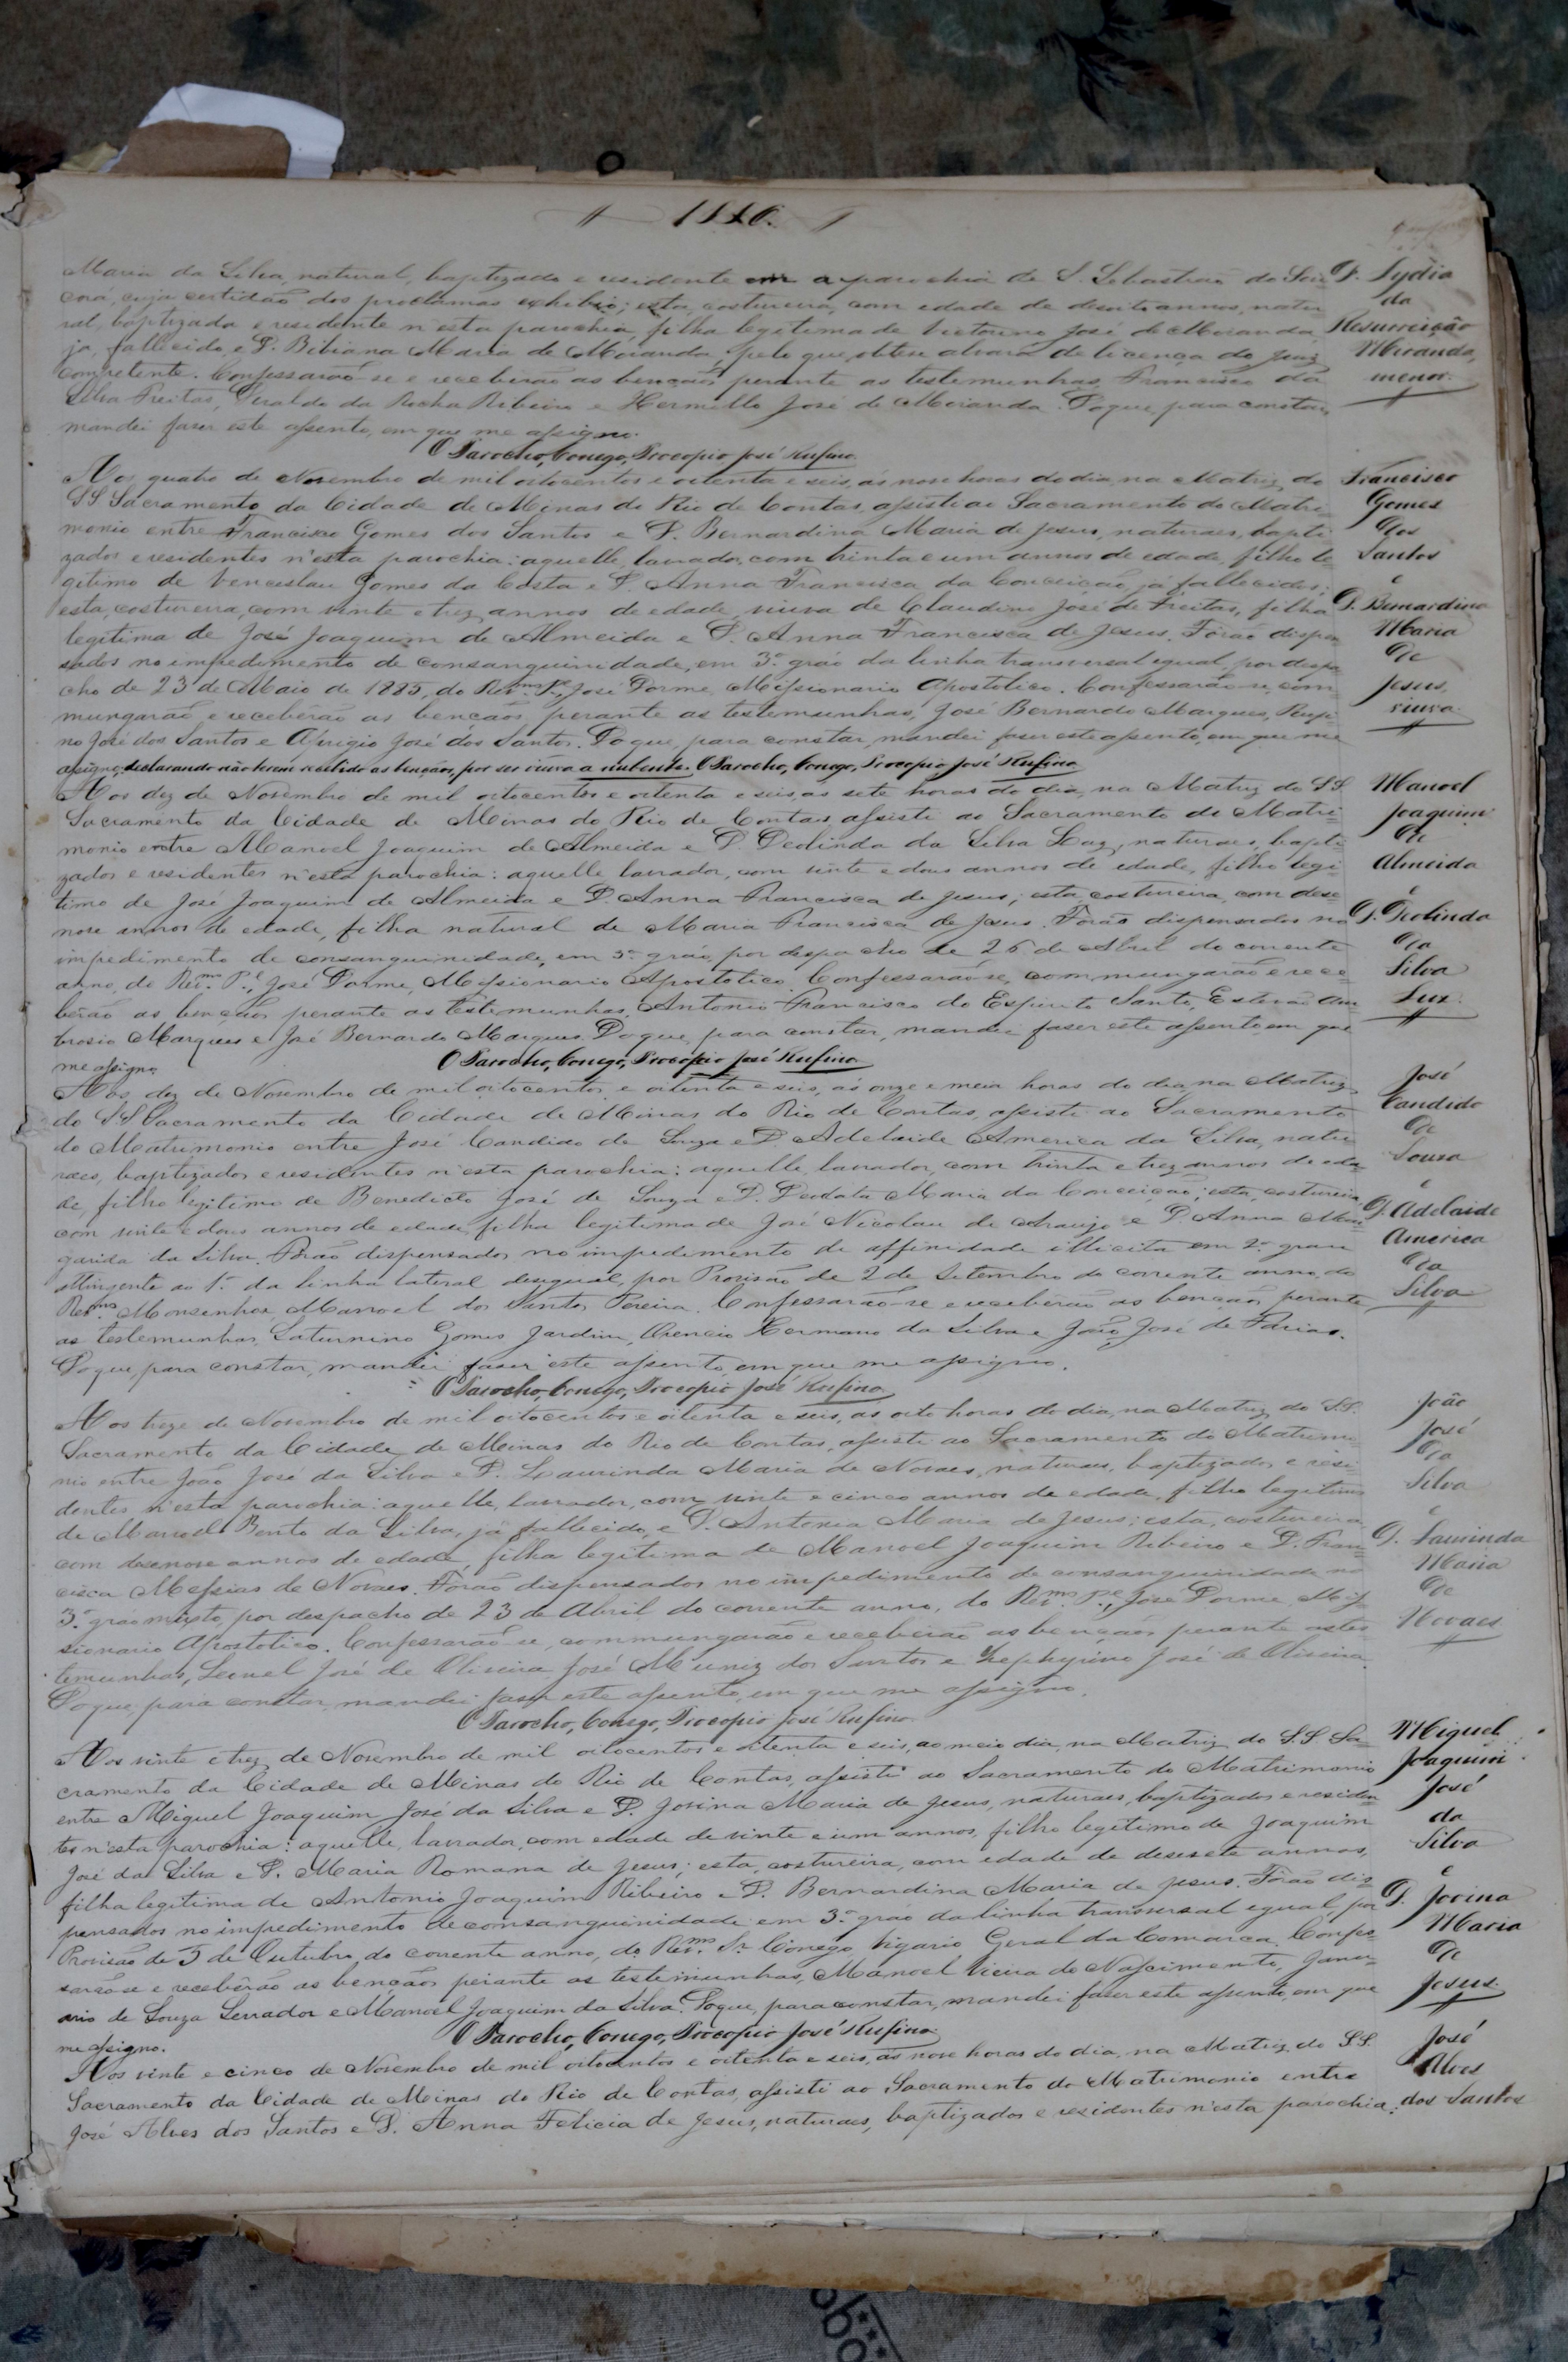 1886.
Maria da Silva, natural, baptizado e residente em a parochia de S. Sebastião do Sin
corá, cuja certidão dos proclamas exhibio; esta, costureira, com edade de desoito annos, natu
ral, baptizada e residente n'esta parochia, filha legitima de Victorino José de Miranda,
já fallecido, e D. Bibiana Maria de Miranda, pelo que obteve alvará de licença do Juiz
competente. Confessarão-se e receberão as bençãos perante as testemunhas, Francisco da
Silva Freitas, Geraldo da Rocha Ribeiro e Hermillo José de Miranda. Do que, para constar,
mandei faser este assento, em que me assigno.
O Parocho, Conego, Procopio José Rufino
D. Lydia
da
Resurreição
Miranda,
menor.
Aos quatro de Novembro de mil oitocentos e oitenta e seis, ás nove horas do dia, na Matriz do
SS Sacramento da Cidade de Minas do Rio de Contas, assisti ao Sacramento do Matri
monio entre Francisco Gomes dos Santos e D. Bernardina Maria de Jesus, naturaes, bapti
zados e residentes n'esta parochia: aquelle, lavrador, com trinta e um annos de edade, filho le
gitimo de Venceslau Gomes da Costa e D. Anna Francisca da Conceição, já fallecidos;
esta, costureira, com vinte e trez annos de edade, viuva de Claudino José de Freitas, filha
legitima de José Joaquim de Almeida e D. Anna Francisca de Jesus. Forão dispen
sados no impedimento de consanguinidade, em 3º gráo da linha transversal egual, por despa
cho de 23 de Maio de 1885, do Revmo. Pe., José Dorme, Missionario Apostolico. Confessarão-se, com
mungarão e receberão as bençãos, perante as testemunhas, José Bernardo Marques, Rufi
no José dos Santos e Aprigio José dos Santos. Do que, para constar, mandei faser este assento, em que me
assigno, declarando não terem recebido as bençãos, por ser viuva a nubente. O Parocho, Conego, Procopio José Rufino
Francisco
Gomes
dos
Santos
e
D. Bernardina
Maria
de
Jesus,
viuva.
Aos dez de Novembro de mil oitocentos e oitenta e seis, as sete horas do dia, na Matriz do SS
Sacramento da Cidade de Minas do Rio de Contas, assisti ao Sacramento do Matri-
monio entre Manoel Joaquim de Almeida e D. Deolinda da Silva Luz, naturaes, bapti-
zados e residentes n'esta parochia: aquelle lavrador, com vinte e dous annos de edade, filho legi-
timo de José Joaquim de Almeida e D. Anna Francisca de Jesus; esta, costureira, com dese
nove annos de edade, filha natural de Maria Francisca de Jesus. Forão dispensados no
impedimento de consanguinidade, em 3º gráo, por despacho de 26 de Abril do corrente
anno, do Revmo. Pe., José Dorme, Missionario Apostolico. Confessarão-se, commungarão e rece-
berão as bençãos perante as testemunhas, Antonio Francisco do Espirito Santo, Estevão Am
brosio Marques e José Bernardo Marques. Do que, para constar, mandei faser este assento, em que
me assigno.
O Parocho, Conego, Procopio José Rufino
Manoel
Joaquim
de
Almeida
e
D. Deolinda
da
Silva
Luz.
Aos dez de Novembro de mil oitocentos e oitenta e seis, ás onze e meia horas do dia, na Matriz
do SS Sacramento da Cidade de Minas do Rio de Contas, assisti ao Sacramento
do Matrimonio entre José Candido de Souza e D. Adelaide America da Silva, natu
raes, baptizados e residentes n'esta parochia: aquelle, lavrador, com trinta e trez annos de eda-
de, filho legitimo de Benedicto José de Souza e D. Deodata Maria da Conceição; esta, costureira,
com vinte e dous annos de edade, filha legitima de José Nicolau de Araujo e D. Anna Mar-
garida da Silva. Forão dispensados no impedimento de affinidade illicita em 2º grau
attingente ao 1º da linha lateral desigual, por Provisão de 2 de Setembro do corrente anno, do
Revmo. Monsenhor Manoel dos Santos Pereira. Confessarão-se e receberão as bençãos perante
as testemunhas, Saturnino Gomes Jardim, Hermano da Silva e João José de Farias.
Do que, para constar, mandei faser este assento, em que me assigno.
O Parocho, Conego, Procopio José Rufino
José
Candido
de
Sousa
e
D. Adelaide
America
da
Silva
Aos treze de Novembro de mil oitocentos e oitenta e seis, ás oito horas do dia, na Matriz do SS.
Sacramento da Cidade de Minas do Rio de Contas, assisti ao Sacramento do Matrimo-
nio entre João José da Silva e D. Laurinda Maria de Novaes, naturaes, baptizados e resi-
dentes n'esta parochia: aquelle, lavrador, com vinte e cinco annos de edade, filho legitimo
de Manoel Bento da Silva, já fallecido, e D. Antonia Maria de Jesus; esta, costureira,
com desenove annos de edade, filha legitima de Manoel Joaquim Ribeiro e D. Fran-
cisca Messias de Novaes. Forão dispensados no impedimento de consanguinidade no
3º gráo mixto, por despacho de 23 de Abril do corrente anno, do Revmo. Pe., José Dorme, Mis-
sionario Apostolico. Confessarão-se, commungarão e receberão as bençãos perante as tes
temunhas, Leonel José de Oliveira, José Muniz dos Santos e Zephyrino José de Oliveira.
Do que, para constar, mandei faser este assento, em que me assigno.
O Parocho, Conego, Procopio José Rufino
João
José
da
Silva
e
D. Laurinda
Maria
de
Novaes
Aos vinte e trez de Novembro de mil oitocentos e oitenta e seis, ao meio dia, na Matriz do S.S. Sa-
cramento da Cidade de Minas do Rio de Contas, assisti ao Sacramento do Matrimonio
entre Miguel Joaquim José da Silva e D. Jovina Maria de Jesus, naturaes, baptizados e residen
tes n'esta parochia: aquelle, lavrador, com edade de vinte e um annos, filho legitimo de Joaquim
José da Silva e D. Maria Romana de Jesus; esta, costureira, com edade de desesete annos,
filha legitima de Antonio Joaquim Ribeiro e D. Bernardina Maria de Jesus. Forão dis
pensados no impedimento de consanguinidade em 3º gráo da linha transversal egual, por
Provisão de 5 de Outubro do corrente anno, do Revmo. Sr. Conego Vigario Geral da Comarca. Confes-
sarão-se e receberão as bençãos perante as testemunhas, Manoel Vieira do Nascimento, Janu-
ario de Souza Serrador e Manoel Joaquim da Silva. Do que, para constar, mandei faser este assento, em que
me assigno.
O Parocho, Conego, Procopio José Rufino
Miguel
Joaquim
José
da
Silva
e
D. Jovina
Maria
de
Jesus.
Aos vinte e cinco de Novembro de mil oitocentos e oitenta e seis, ás nove horas do dia, na Matriz do SS.
Sacramento da Cidade de Minas do Rio de Contas, assisti ao Sacramento do Matrimonio entre
José Alves dos Santos e D. Anna Felicia de Jesus, naturaes, baptizados e residentes n'esta parochia:
José
Alves
dos Santos